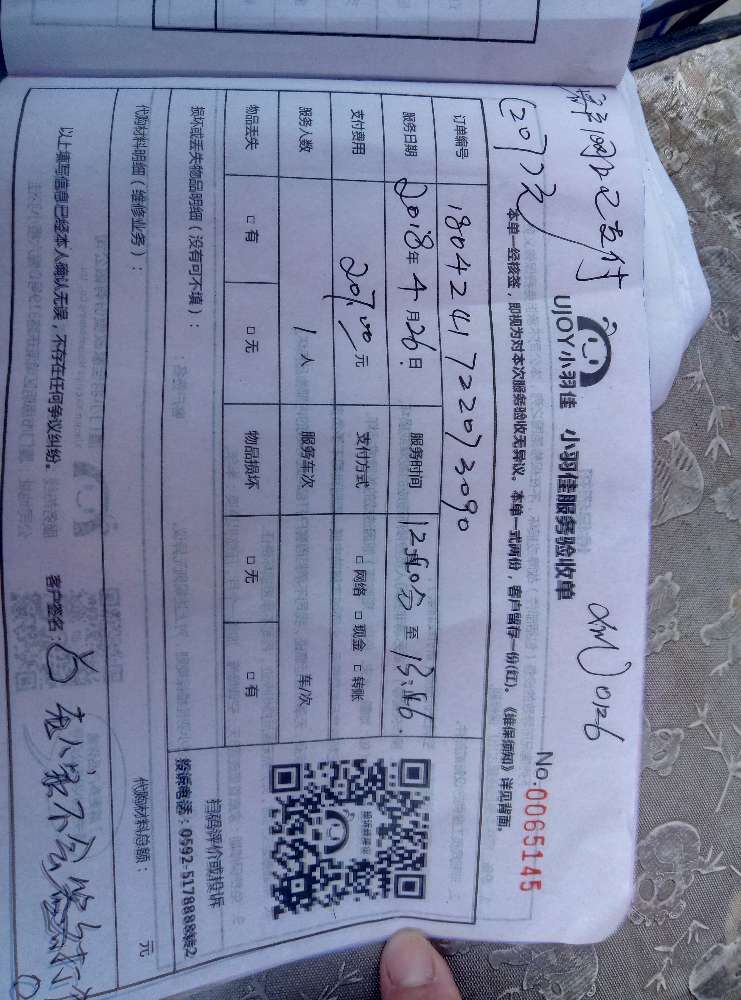 XM0126
已支付
(207)元
UJOY小羽佳 小羽佳服务验收单
No:0065145
本单一经核签，即视为对本次服务验收无异议。本单一式两份，客户留存一份(红)。《维保须知》详见背面。
订单编号 1804241722073090
服务日期 2018年4月26日 服务时间 12 分至13:
支付费用 207.00元 支付方式 □网络 □现金 □转账
服务人数 1人 服务车次 车/次
物品丢失 □有 □无 物品损坏 □无 □有
损坏或丢失物品明细（没有可不填）：
扫码评价或投诉
投诉电话：0592-5178888转2
代购材料明细（维修业务）： 代购材料总额： 元
以上填写信息已经本人确认无误，不存在任何争议纠纷。 客户签名： 老人家不会签